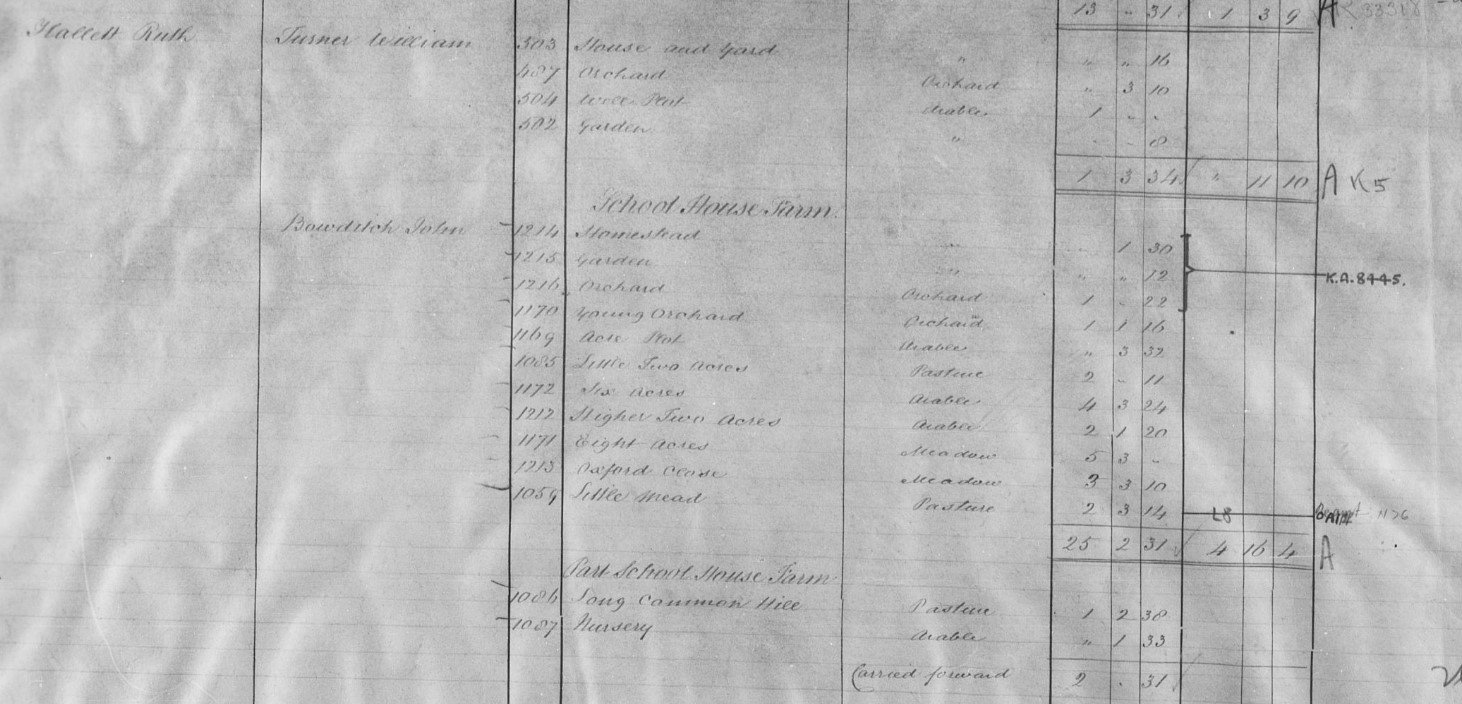 13 " 31 1 3 9 A
Hallett Ruth Turner William 503 House and Yard " " " 16
487 Orchard Orchard " 3 10
504 Well Plot Arable 1 " "
502 Garden " " " 8
1 3 34 " 11 10 A K5
School House Farm
Bowditch John 1214 Homestead " " 1 30
1215 Garden " " " 12 K.A. 8445.
1216 Orchard Orchard 1 " 22
1170 Young Orchard Orchard 1 1 16
1169 Acre Plot Arable " 3 32
1085 Little Two Acres Pasture 2 " 11
1172 Six Acres Arable 4 3 24
1212 Higher Two Acres Arable 2 1 20
1171 Eight Acres Meadow 5 3 "
1213 Oxford Close Meadow 3 3 10
1059 Little Mead Pasture 2 3 14 L8
25 2 31 4 16 4 A
Part School House Farm
1086 Long Common Hill Pasture 1 2 38
1087 Nursery Arable " 1 33
Carried forward 2 " 31